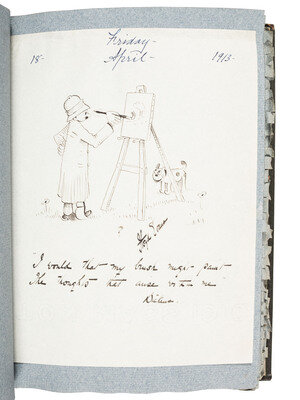 Friday -
18 - April - 1913 -
?
"I would that my brush might paint
The thoughts that arise within me"